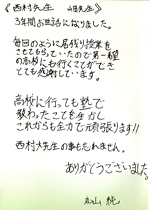 《西村先生 山田先生》
3年間お世話になりました。
毎日のように居残り授業を
させてもらっていたので第一希望
の高校にも行くことができ
とても感謝しています。
高校に行っても塾で
教わったことを生かし
これからも全力で頑張ります!!
西村大先生の事も忘れません。
ありがとうございました。